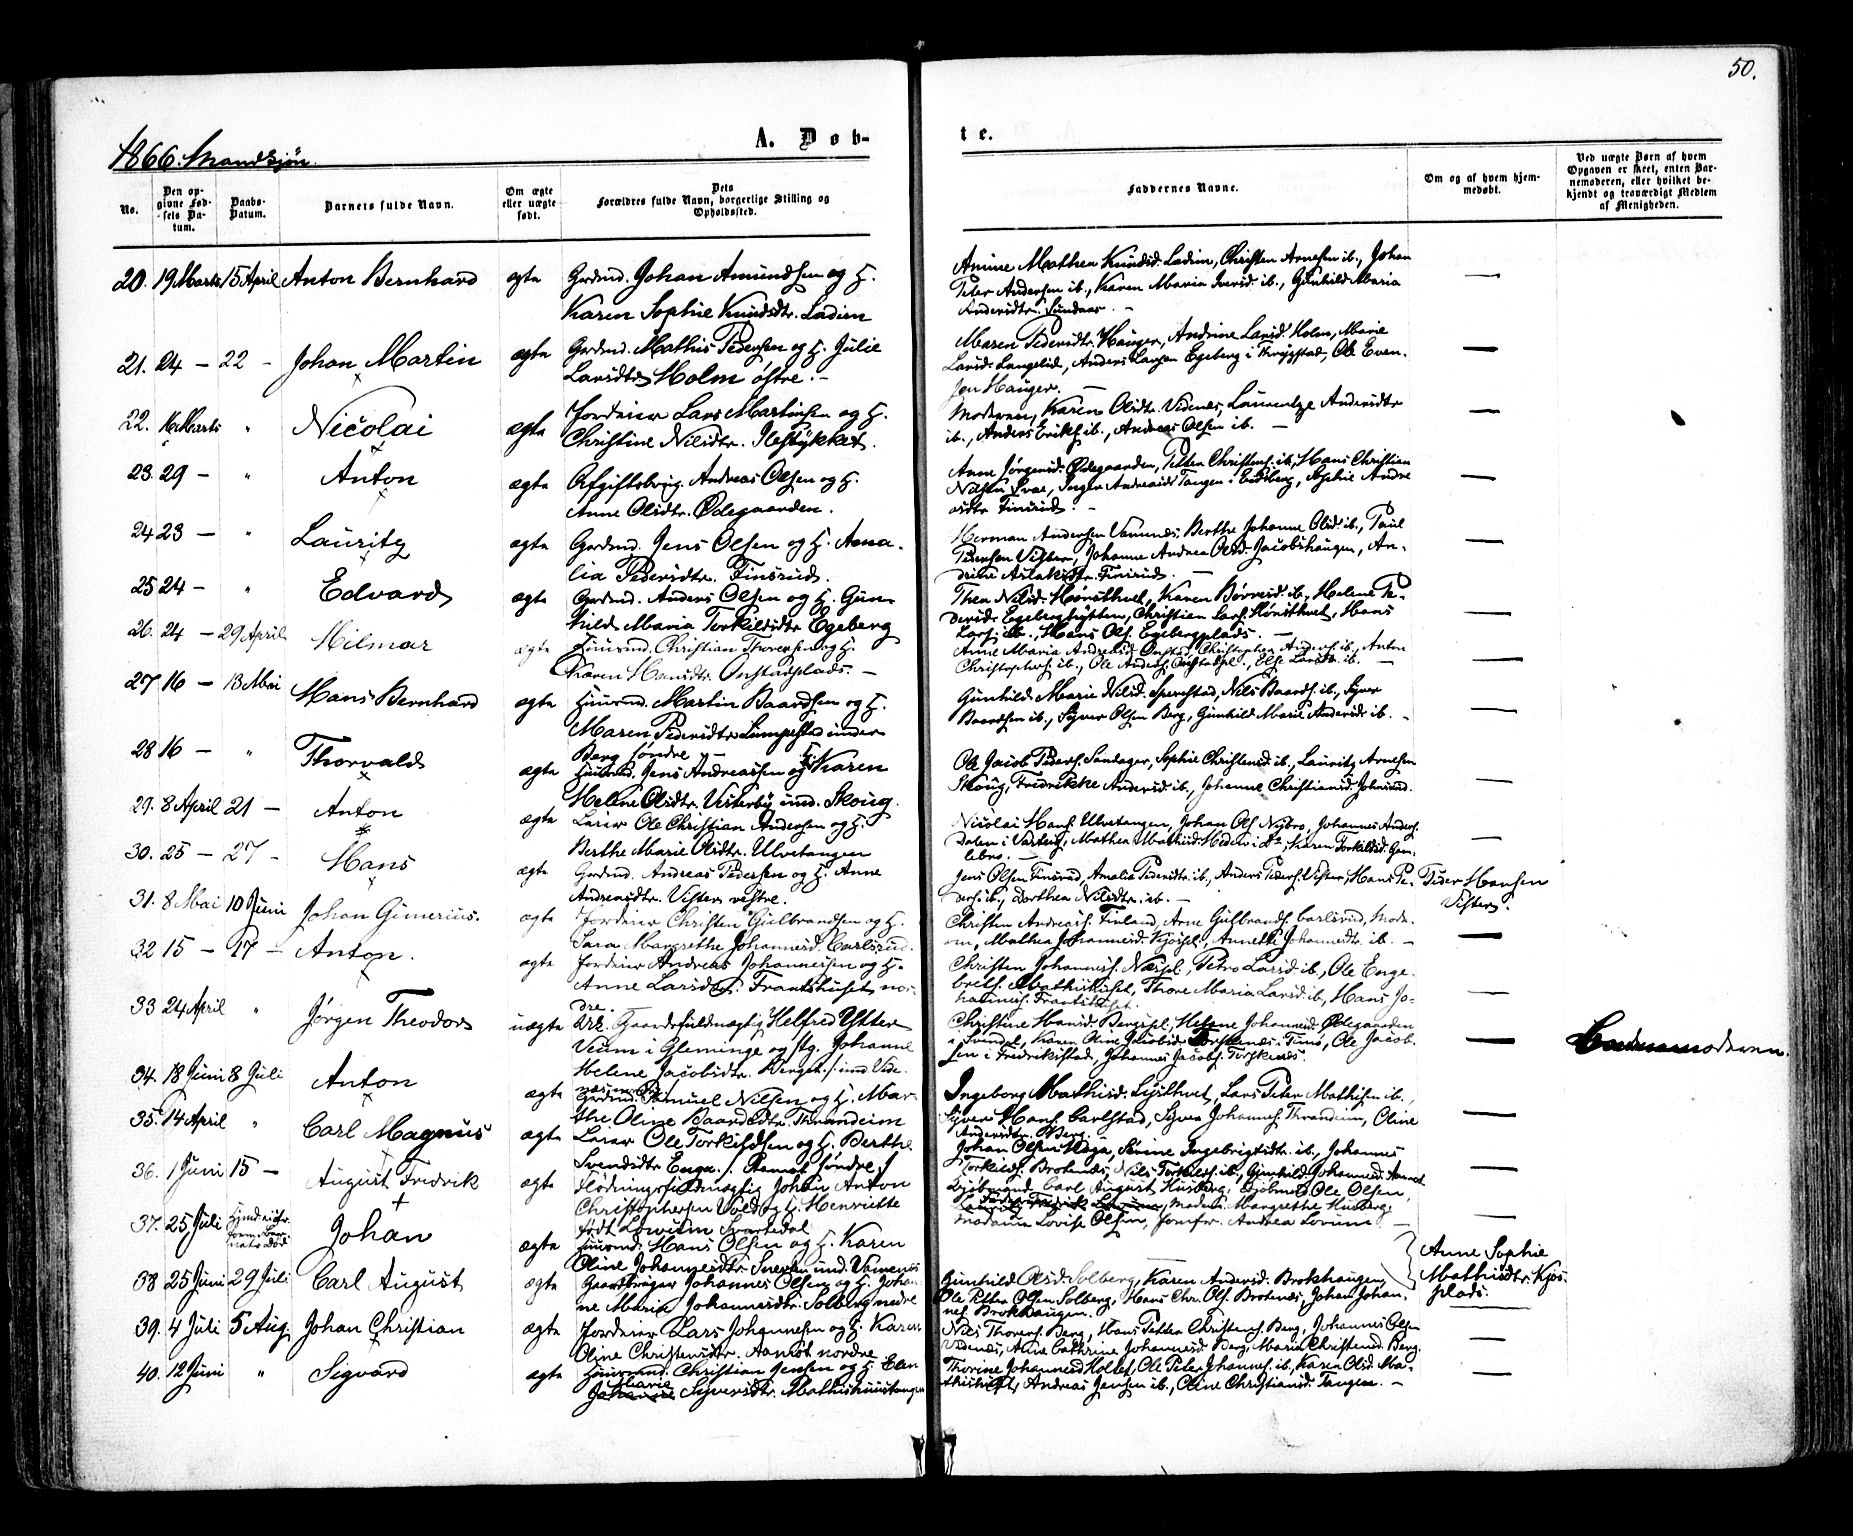 50.
1866. Mandkjøn.
A. Døb-
te.
No.
Den op-
givne Fød-
sels Da-
tum.
Daabs-
Datum.
Barnets fulde Navn.
Om ægte
eller uægte
født.
Dets
Forældres fulde Navn, borgerlige Stilling og
Opholdssted.
Faddernes Navne.
Om og af hvem hjem-
medøbt.
Ved uægte Børn af hvem
Opgaven er skeet, enten Bar-
nemoderen, eller hvilket be-
kjendt og troværdigt Medlem
af Menigheden.
20. 19 Marts 15 April Anton Bernhard ægte Grdmd. Johan Amundsen og H.
Karen Sophie Knudsdtr. Ladim
Amine Mathea Knudsd. Ladim, Christen Arnesen ib., Johan
Peter Andersen ib., Karen Maria Iversd. ib., Gunhild Maria
Andersdtr. Sundaas. —
21. 24 — 22 — Johan Martin ægte Grdmd. Mathis Pedersen og H. Julie
Larsdtr. Holm østre. —
Maren Pedersdtr. Hauger, Andrine Larsd. Holm, Marie
Larsd. Langelid, Anders Larsen Egeberg i Krygstad, Ole Even-
sen Hauger. —
22. Marts " Nicolai ægte Jordeier Lars Martinsen og H.
Christine Nilsdtr. Ilestykket.
Moderen, Karen Olsdtr. Videnes, Laurentze Andersdtr
ib., Anders Eriks. ib., Andreas Olsen ib. —
23. 29 — " Anton ægte Afgiftsbrug. Andreas Olsen og H.
Anne Olsdtr. Ødegaarden.
Anne Jørgensd. Ødegaarden, Petter Christens. ib., Hans Christian
Nilsen Svae, Inger Andreasd. Tangen i Eidsberg, Sophie Andre
asdtr Finsrud. —
24 23 — " Lauritz ægte Grdmd. Jens Olsen og H. Ama-
lia Pedersdtr. Finsrud.
Herman Andersen Vamnæs, Berthe Johanne Olsd. ib., Paul
Pedersen Vister, Johanne Andrea Olsd. Jacobshaugen, An-
drine Aslaksdtr. Finsrud. —
25 24 — " Edvard ægte Grdmd. Anders Olsen og H. Gun-
hild Maria Torkildsdtr Egeberg
Thea Nilsd. Hønsthvet, Karen Børresd. ib., Helene Pe-
dersd. Egeberghytten, Christian Lars. Hønsthvet, Hans
Lars. ib., Hans Ols. Egebergplads. —
26. 24 — 29 April Hilmar ægte Huusmd. Christian Thoresen og H.
Karen Hansdtr. Onstadplads. —
Anne Maria Andreasd. Onstad, Christopher Anders. ib., Anton
Christophers. ib., Ole Anders. Onstadpl., Else Larsdtr. ib. —
27 16 — 13 Mai Hans Bernhard ægte Huusmd. Martin Baardsen og H.
Maren Pedersdtr. Lumpestad under
Berg søndre —
Gunhild Marie Nilsd. Sperrestad, Nils Baards. ib., Syver
Baardsen ib., Syver Olsen Berg, Gunhild Marie Andersd. ib. —
28 16 — " Thorvald ægte Huusmd. Jens Andreassen og H. Karen
Helene Olsdtr. Visterby und. Skoug.
Ole Jacob Peders. Sandager, Sophie Christensd. ib., Lauritz Arnesen
Skoug, Fredrikke Andersd. ib., Johanne Christiansd. Johnsrud.
29. 8 April 21 — Anton ægte Leier Ole Christian Andersen og H.
Berthe Marie Olsdtr. Ulvetangen
Nicolai Hans. Ulvetangen, Johan Ols. Nybro, Johannes Anders.
Dalen i Varteig, Mathea Mathisd. Heden i Do, Karen Torkildsd. Gam-
lebro. —
30. 25 — 27 — Hans ægte Grdmd. Andreas Pedersen og H. Anne
Andreasdtr. Vister vestre.
Jens Olsen Finsrud, Amalie Pedersdtr. ib., Anders Peders. Vister, Hans Pe-
ders. ib., Dorthea Nilsdtr. ib. —
Peder Hansen
Vister.
31. 8 Mai 10 Juni Johan Gunerius. ægte Jordeier Christen Gulbrandsen og H.
Sara Margrethe Johannesd. Carlsrud.
Christen Andreas. Finland, Arne Gulbrands. Carlsrud, Mode-
ren, Mathea Johannesd. Kjøspl., Annette Johannesdtr. ib. —
32 15 — 17 — Anton. ægte Jordeier Andreas Johannessen og H.
Anne Larsdtr. Frantshuset nor-
dre.
Christen Johanness. Næspl., Petro Larsd. ib., Ole Enge-
brets. Mathishuset, Thore Maria Larsd. ib., Hans Jo-
hanness. Frantshuset.
33 24 April " Jørgen Theodor uægte Ark. Gaardsfuldmægtig Helfred Ytter
Veum i Glemminge og Pig. Johanne
Helene Jacobsdtr. Bergspl. /: und Vide-
næs nordre :/
Christine Hansd. Bergspl., Helene Johannesd. Ødegaarden
i Svindal, Karen Oline Jacobsd. Torskenæs i Tune, Ole Jacob-
sen i Fredrikstad, Johannes Jacobs. Torskenæs.
Barnemoderen.
34. 18 Juni 8 Juli Anton ægte Grdmd. Samuel Nilsen og H. Mar-
the Oline Baardsdtr. Throndeim
Ingeborg Mathisd. Lysthvet, Lars Peter Mathisen ib.,
Syver Hans. Carlstad, Syver Johannes. Throndeim, Oline
Andersdtr. Berg.
35. 14 April " Carl Magnus ægte Leier Ole Torkildsen og H. Berthe
Svendsdtr. Enga. /: Aamot søndre :/
Johan Olsen Haga, Sørine Ingebrigtsdtr. ib., Johannes
Torkilds. Brotenæs, Nils Torkilds. ib., Gunhild Johannesd. Aamot
36. 1 Juni 15 — August Fredrik ægte Flødningsfuldmægtig Johan Anton
Christophersen Vold og H. Henriette
født Lovum Svartedal
Kjøbmand Carl August Husberg, Kjøbmd Ole Olsen,
Madam Margrethe Husberg,
Madame Lovise Olsen, Jomfr. Andrea Lovum —
37. 25 Juli Johan ægte Huusmd. Hans Olsen og H. Karen
Oline Johannesdtr. Sneren und. Vamenes
Anne Sophie
Mathisdtr. Kjøs-
plads.
38 25 Juni 29 Juli Carl August ægte Gaardbruger Johannes Olsen og H. Johan-
ne Maria Johannesdtr. Solberg nedre
Gunhild Olsd. Solberg, Karen Andersd. Brokhaugen,
Ole Petter Olsen Solberg, Hans Chr. Ols. Brotenes, Johan Johan-
nes. Brokhaugen.
39. 4 Juli 5 Aug. Johan Christian ægte Jordeier Lars Johannesen og H. Karen
Oline Christensdtr. Aamot nordre
Nils Thorers. Berg, Hans Petter Christens. Berg, Johannes Olsen
Videnes, Anne Cathrine Johannesd. Berg, Maria Christensd. Berg.
40. 12 Juni " Sigvard ægte Huusmd. Christian Jensen og H. Elen
Marie
Johanne Syversdtr. Mathishuustangen
Thorine Johannesd. Hollet, Ole Peter Johannes. ib., Karen Olsd. Ma-
thishuset, Andreas Jensen ib., Oline Christiansd. Tangen. —